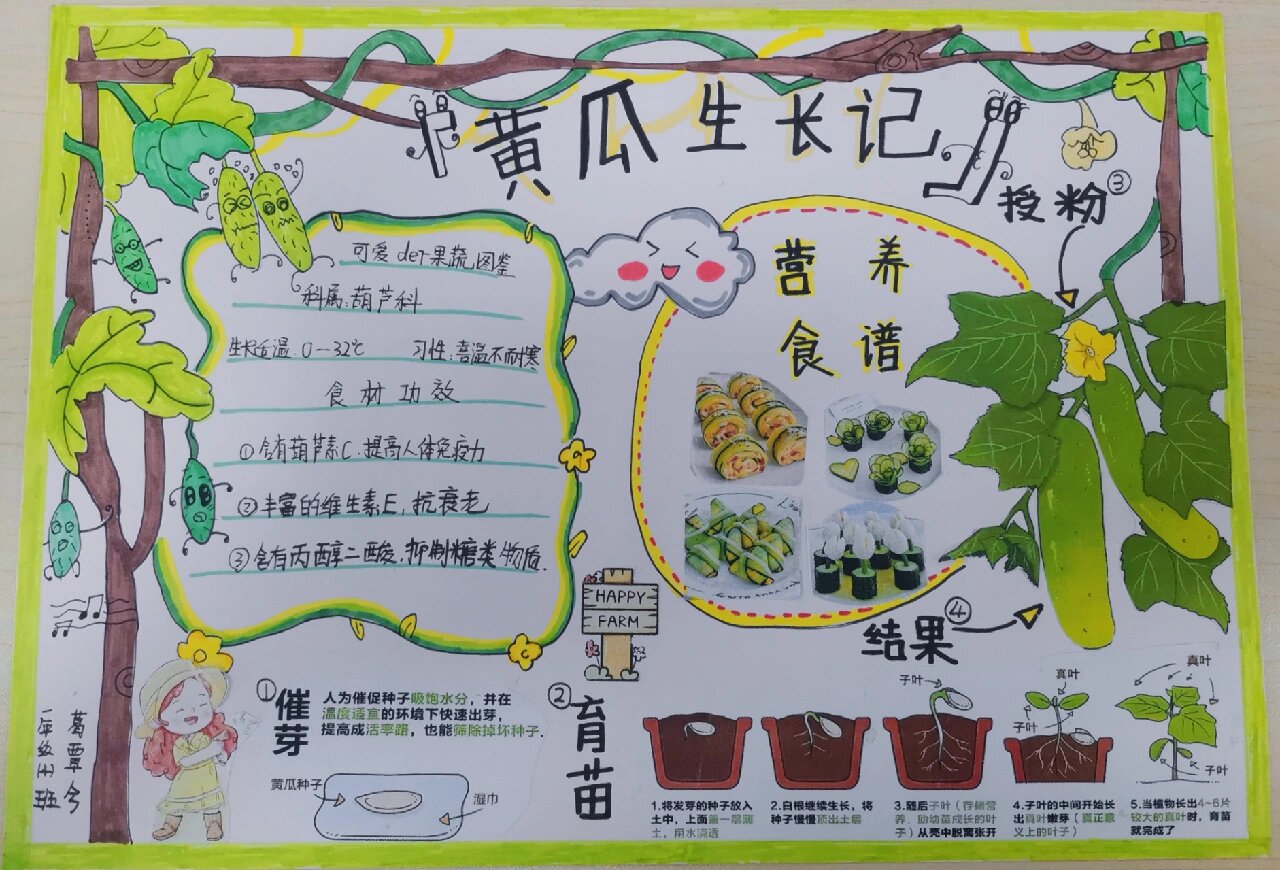 『黄瓜生长记』
可爱der果蔬图鉴
科属:葫芦科
生长适温:0-32℃ 习性:喜温不耐寒
食材功效
①含有葫芦素C.提高人体免疫力
②丰富的维生素E,抗衰老
③含有丙醇二酸.抑制糖类物质.
营养
食谱
授粉③
结果④
HAPPY
FARM
①催芽
人为催促种子吸饱水分，并在
温度适宜的环境下快速出芽，
提高成活率路，也能筛除掉坏种子.
黄瓜种子
湿巾
②育苗
子叶
真叶
子叶
真叶
子叶
1.将发芽的种子放入
土中，上面盖一层薄
土，用水浇透
2.白根继续生长，将
种子慢慢顶出土层
3.随后子叶（存储营
养，助幼苗成长的叶
子）从壳中脱离张开
4.子叶的中间开始长
出真叶嫩芽（真正意
义上的叶子）
5.当植物长出4~6片
较大的真叶时，育苗
就完成了